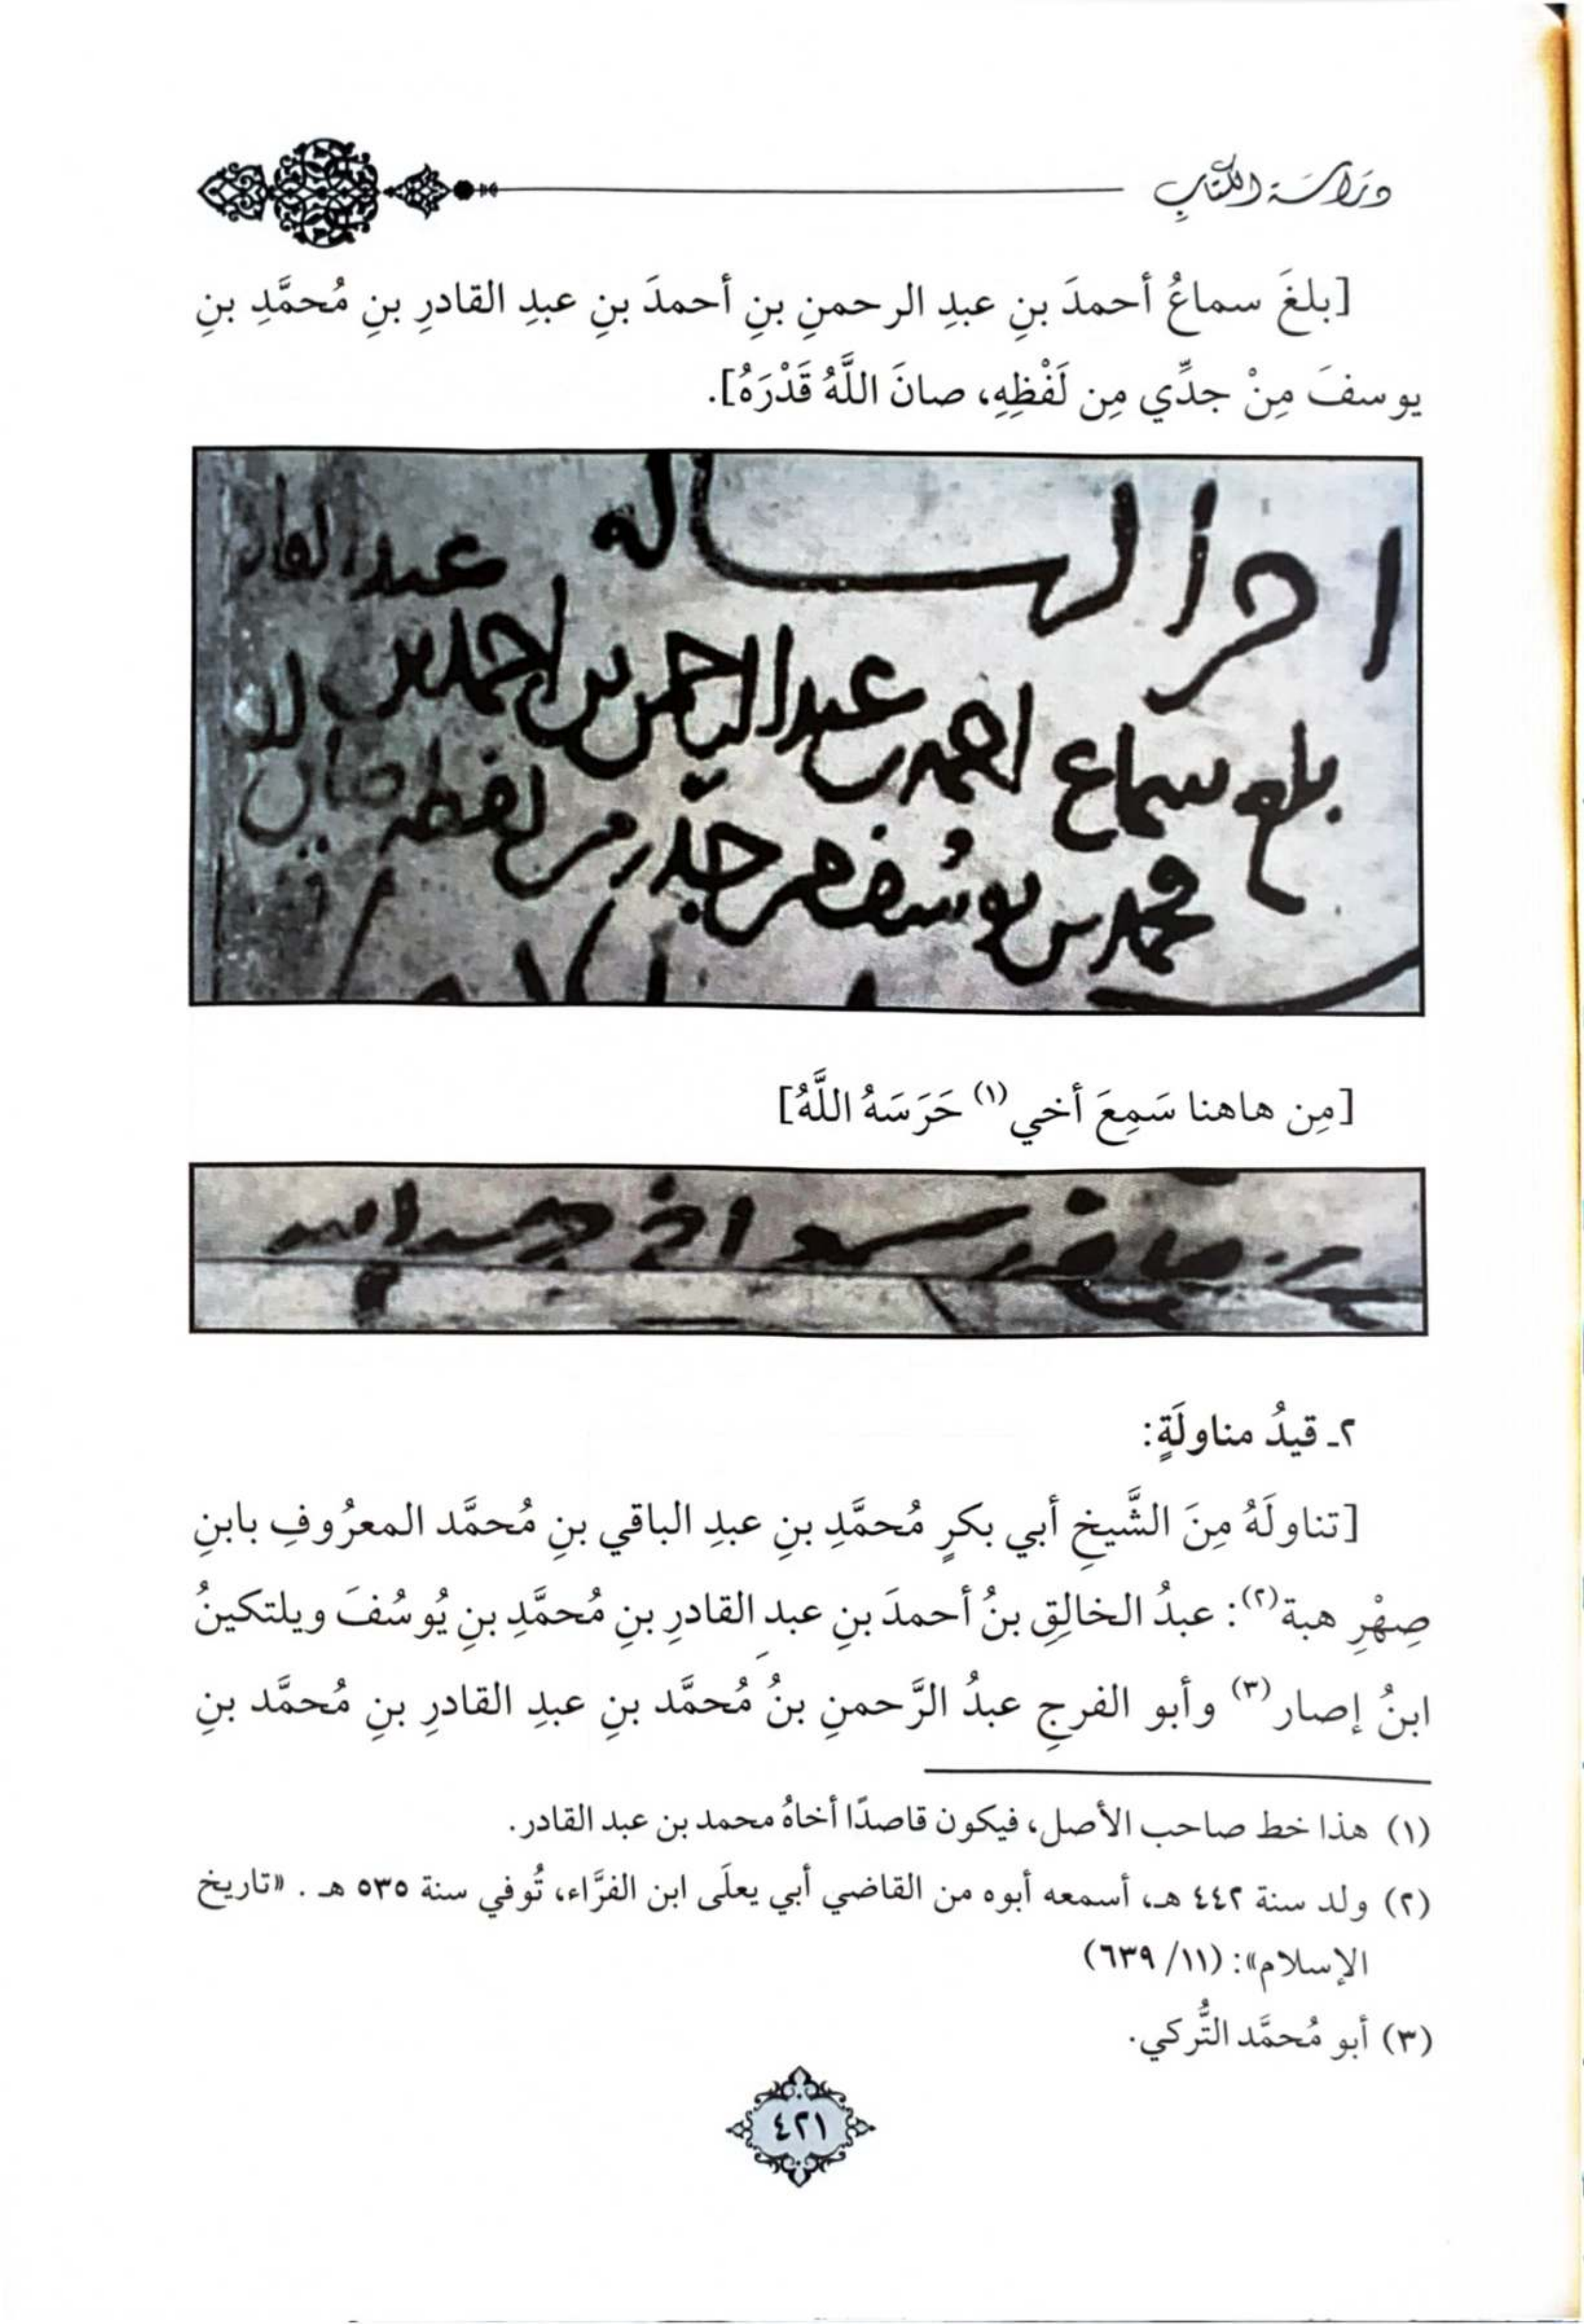 دراسة الكتاب
[بلغَ سماعُ أحمدَ بنِ عبدِ الرحمنِ بنِ أحمدَ بنِ عبدِ القادرِ بنِ مُحمَّدِ بنِ
يوسفَ مِنْ جدِّي مِن لَفْظِهِ، صانَ اللَّهُ قَدْرَهُ].
اخر الرساله
عبد القادر
بلغ سماع احمد بن عبد الرحمن بن احمد بن
محمد بن يوسف من جدي من لفظه صان
[مِن هاهنا سَمِعَ أخي(١) حَرَسَهُ اللَّهُ]
من هاهنا سمع اخي حرسه الله
٢ـ قيدُ مناولَةٍ:
[تناولَهُ مِنَ الشَّيخِ أبي بكرٍ مُحمَّدِ بنِ عبدِ الباقي بنِ مُحمَّد المعرُوفِ بابنِ
صِهْرِ هبة(٢): عبدُ الخالِقِ بنُ أحمدَ بنِ عبدِ القادرِ بنِ مُحمَّدِ بنِ يُوسُفَ ويلتكينُ
ابنُ إصار(٣) وأبو الفرجِ عبدُ الرَّحمنِ بنُ مُحمَّد بنِ عبدِ القادرِ بنِ مُحمَّد بنِ
(١) هذا خط صاحب الأصل، فيكون قاصدًا أخاهُ محمد بن عبد القادر.
(٢) ولد سنة ٤٤٢ هـ، أسمعه أبوه من القاضي أبي يعلَى ابن الفرَّاء، تُوفي سنة ٥٣٥ هـ. «تاريخ
الإسلام»: (١١/ ٦٣٩)
(٣) أبو مُحمَّد التُّركي.
٤٢١